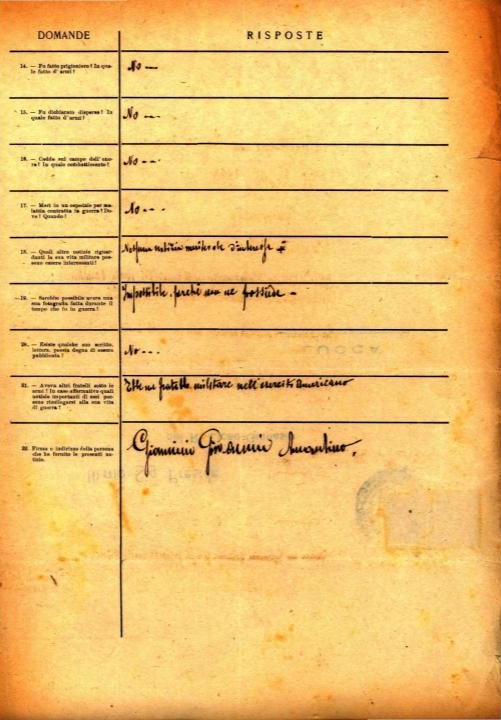 DOMANDE
RISPOSTE
14. — Fu fatto prigioniero? In qua-
le fatto d' armi?
No —
15. — Fu dichiarato disperso? In
quale fatto d'armi?
No —-
16. — Cadde sul campo dell'ono-
re? In quale combattimento?
No —-
17. — Morì in un ospedale per ma-
lattia contratta in guerra? Do-
ve? Quando?
No —-
18. — Quali altre notizie riguar-
danti la sua vita militare pos-
sono essere interessanti?
Nessuna notizia d'interesse
19. — Sarebbe possibile avere una
sua fotografia fatta durante il
tempo che fu in guerra?
Impossibile, perché non ne possiede —
20. — Esiste qualche suo scritto,
lettera, poesia degna di essere
pubblicata?
No —-
LUCCA
21. — Aveva altri fratelli sotto le
armi? In caso affermativo quali
notizie importanti di essi pos-
sono ricollegarsi alla sua vita
di guerra?
Ebbe un fratello militare nell'esercito Americano
22. Firma e indirizzo della persona
che ha fornito le presenti no-
tizie.
Giannini Giovanni